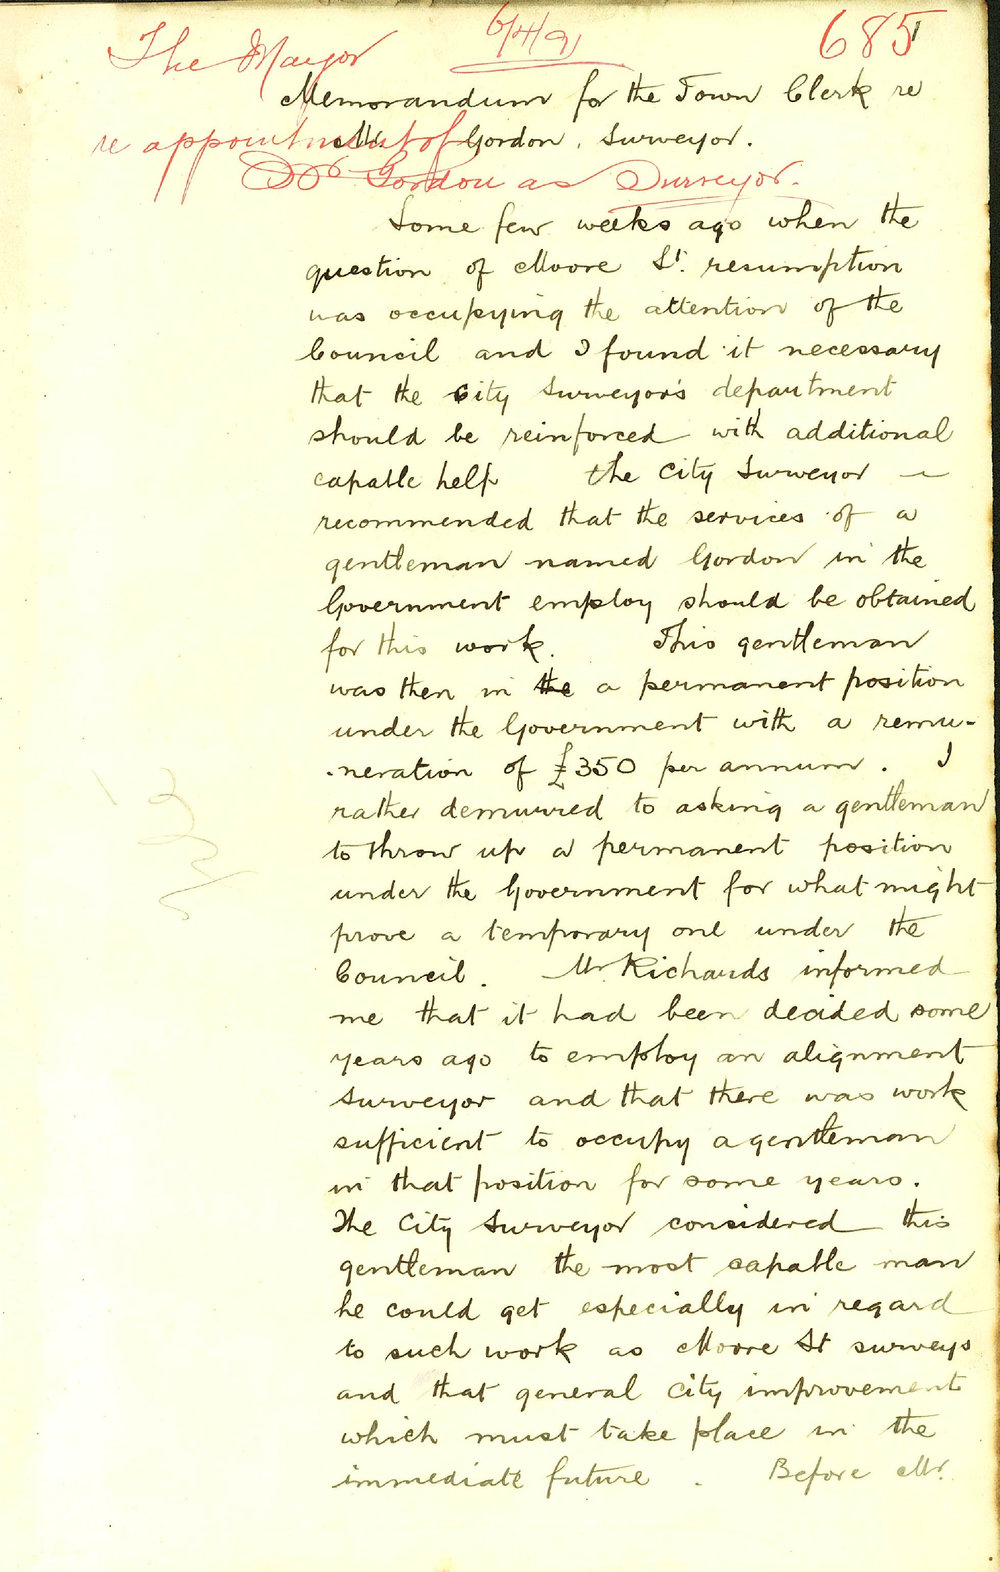 The Mayor
6/4/91
685
Memorandum for the Town Clerk re
re appointment of
Mr Gordon, Surveyor.
Gordon as Surveyor.
Some few weeks ago when the
question of Moore St. resumption
was occupying the attention of the
Council and I found it necessary
that the City Surveyor's department
should be reinforced with additional
capable help the City Surveyor —
recommended that the services of a
gentleman named Gordon in the
Government employ should be obtained
for this work. This gentleman
was then in the a permanent position
under the Government with a remu-
-neration of £350 per annum. I
rather demurred to asking a gentleman
to throw up a permanent position
under the Government for what might
prove a temporary one under the
Council. Mr. Richards informed
me that it had been decided some
years ago to employ an alignment
surveyor and that there was work
sufficient to occupy a gentleman
in that position for some years.
The City Surveyor considered this
gentleman the most capable man
he could get especially in regard
to such work as Moore St surveys
and that general City improvement
which must take place in the
immediate future. Before Mr.